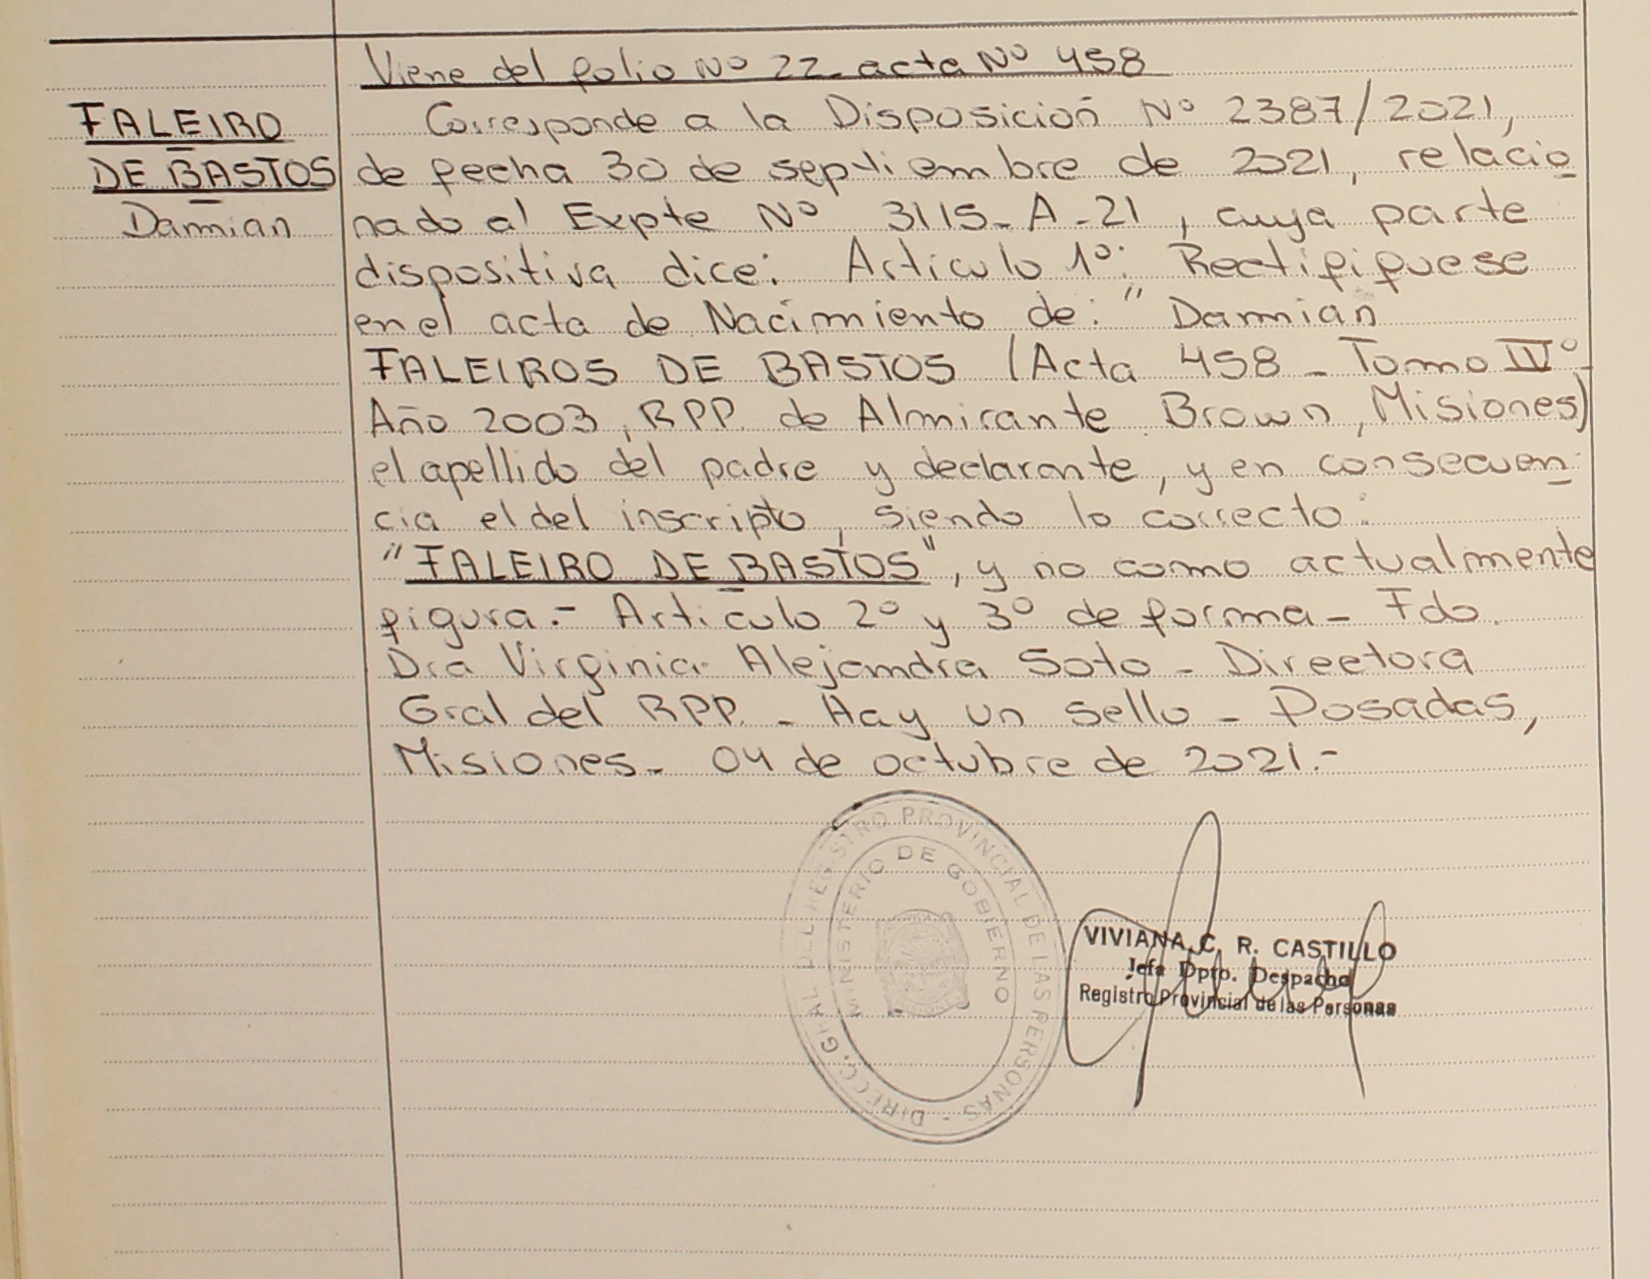 Viene del folio Nº 22. acta Nº 458
FALEIRO
DE BASTOS
Damian
Corresponde a la Disposición Nº 2387/2021,
de fecha 30 de septiembre de 2021, relacio
nado al Expte Nº 3115-A-21, cuya parte
dispositiva dice: Artículo 1º: Rectifiquese
en el acta de Nacimiento de: "Damian
FALEIROS DE BASTOS (Acta 458 - Tomo IVº-
Año 2003, RPP. de Almirante Brown, Misiones)
el apellido del padre y declarante, y en consecuen
cia el del inscripto, siendo lo correcto:
"FALEIRO DE BASTOS", y no como actualmente
figura.- Artículo 2º y 3º de forma - Fdo.
Dra Virginia Alejandra Soto - Directora
Gral del RPP. - Hay un sello - Posadas,
Misiones. 04 de octubre de 2021.-
DIRECC. GRAL DEL REGISTRO PROVINCIAL DE LAS PERSONAS -
MINISTERIO DE GOBIERNO
VIVIANA C. R. CASTILLO
Jefa Dpto. Despacho
Registro Provincial de las Personas